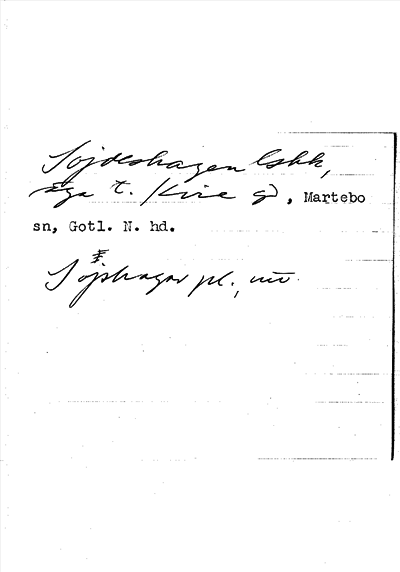 Söjdeshagen lshk,
äga t. Kvie gd, Martebo
sn, Gotl. N. hd.
Söjshagar pl.,